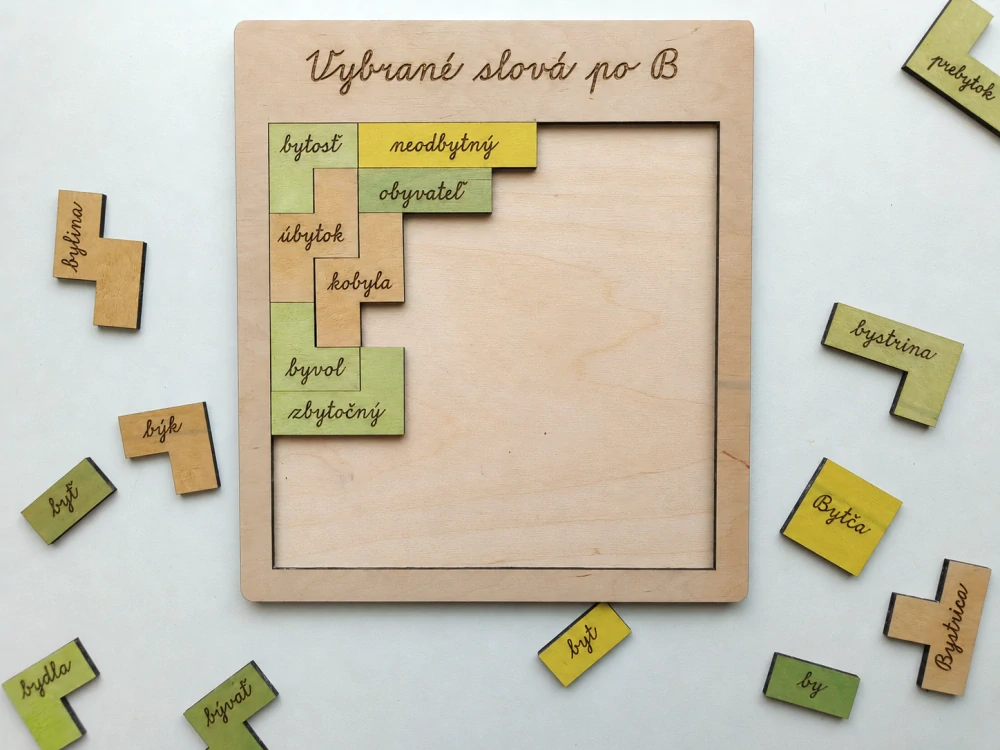 Vybrané slová po B
bytosť
neodbytný
obyvateľ
úbytok
kobyla
byvol
zbytočný
prebytok
bylina
bystrina
býk
byť
Bytča
Bystrica
byt
by
bydla
bývať